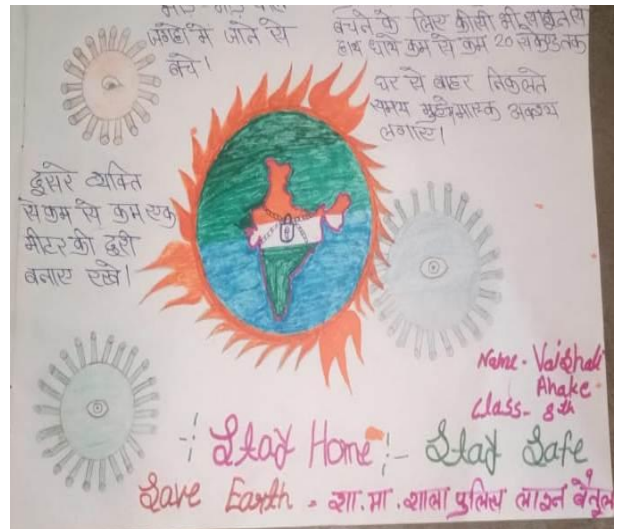 जगहों में जाने से
बचे!
बचने के लिए कीसी भी साबुन से
हाथ धोये कम से कम 20 सेकण्ड तक
घर से बाहर निकलते
समय मुँह मास्क अवश्य
लगाए।
दुसरे व्यक्ति
से कम से कम एक
मीटर की दुरी
बनाए रखे।
Name - Vaishali
Ahake
Class - 8th
Stay Home :- Stay Safe
Save Earth - शा. मा. शाला पुलिस लाइन बैतूल